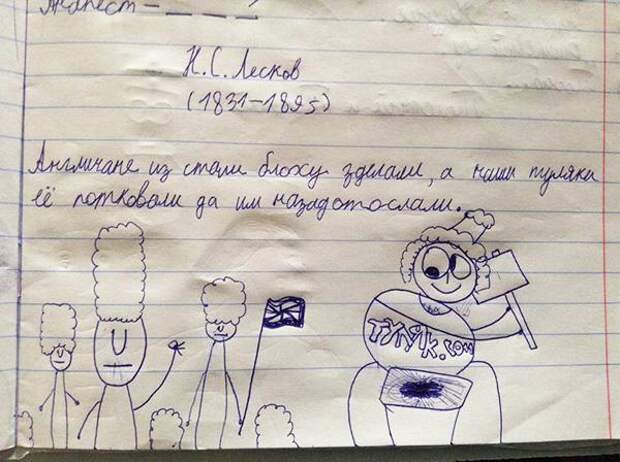 Анапест – _ _ _́
Н.С. Лесков
(1831–1895)
Англичане из стали блоху зделали, а наши туляки
её потковали да им назадотослали.
ТУЛЯК.COM